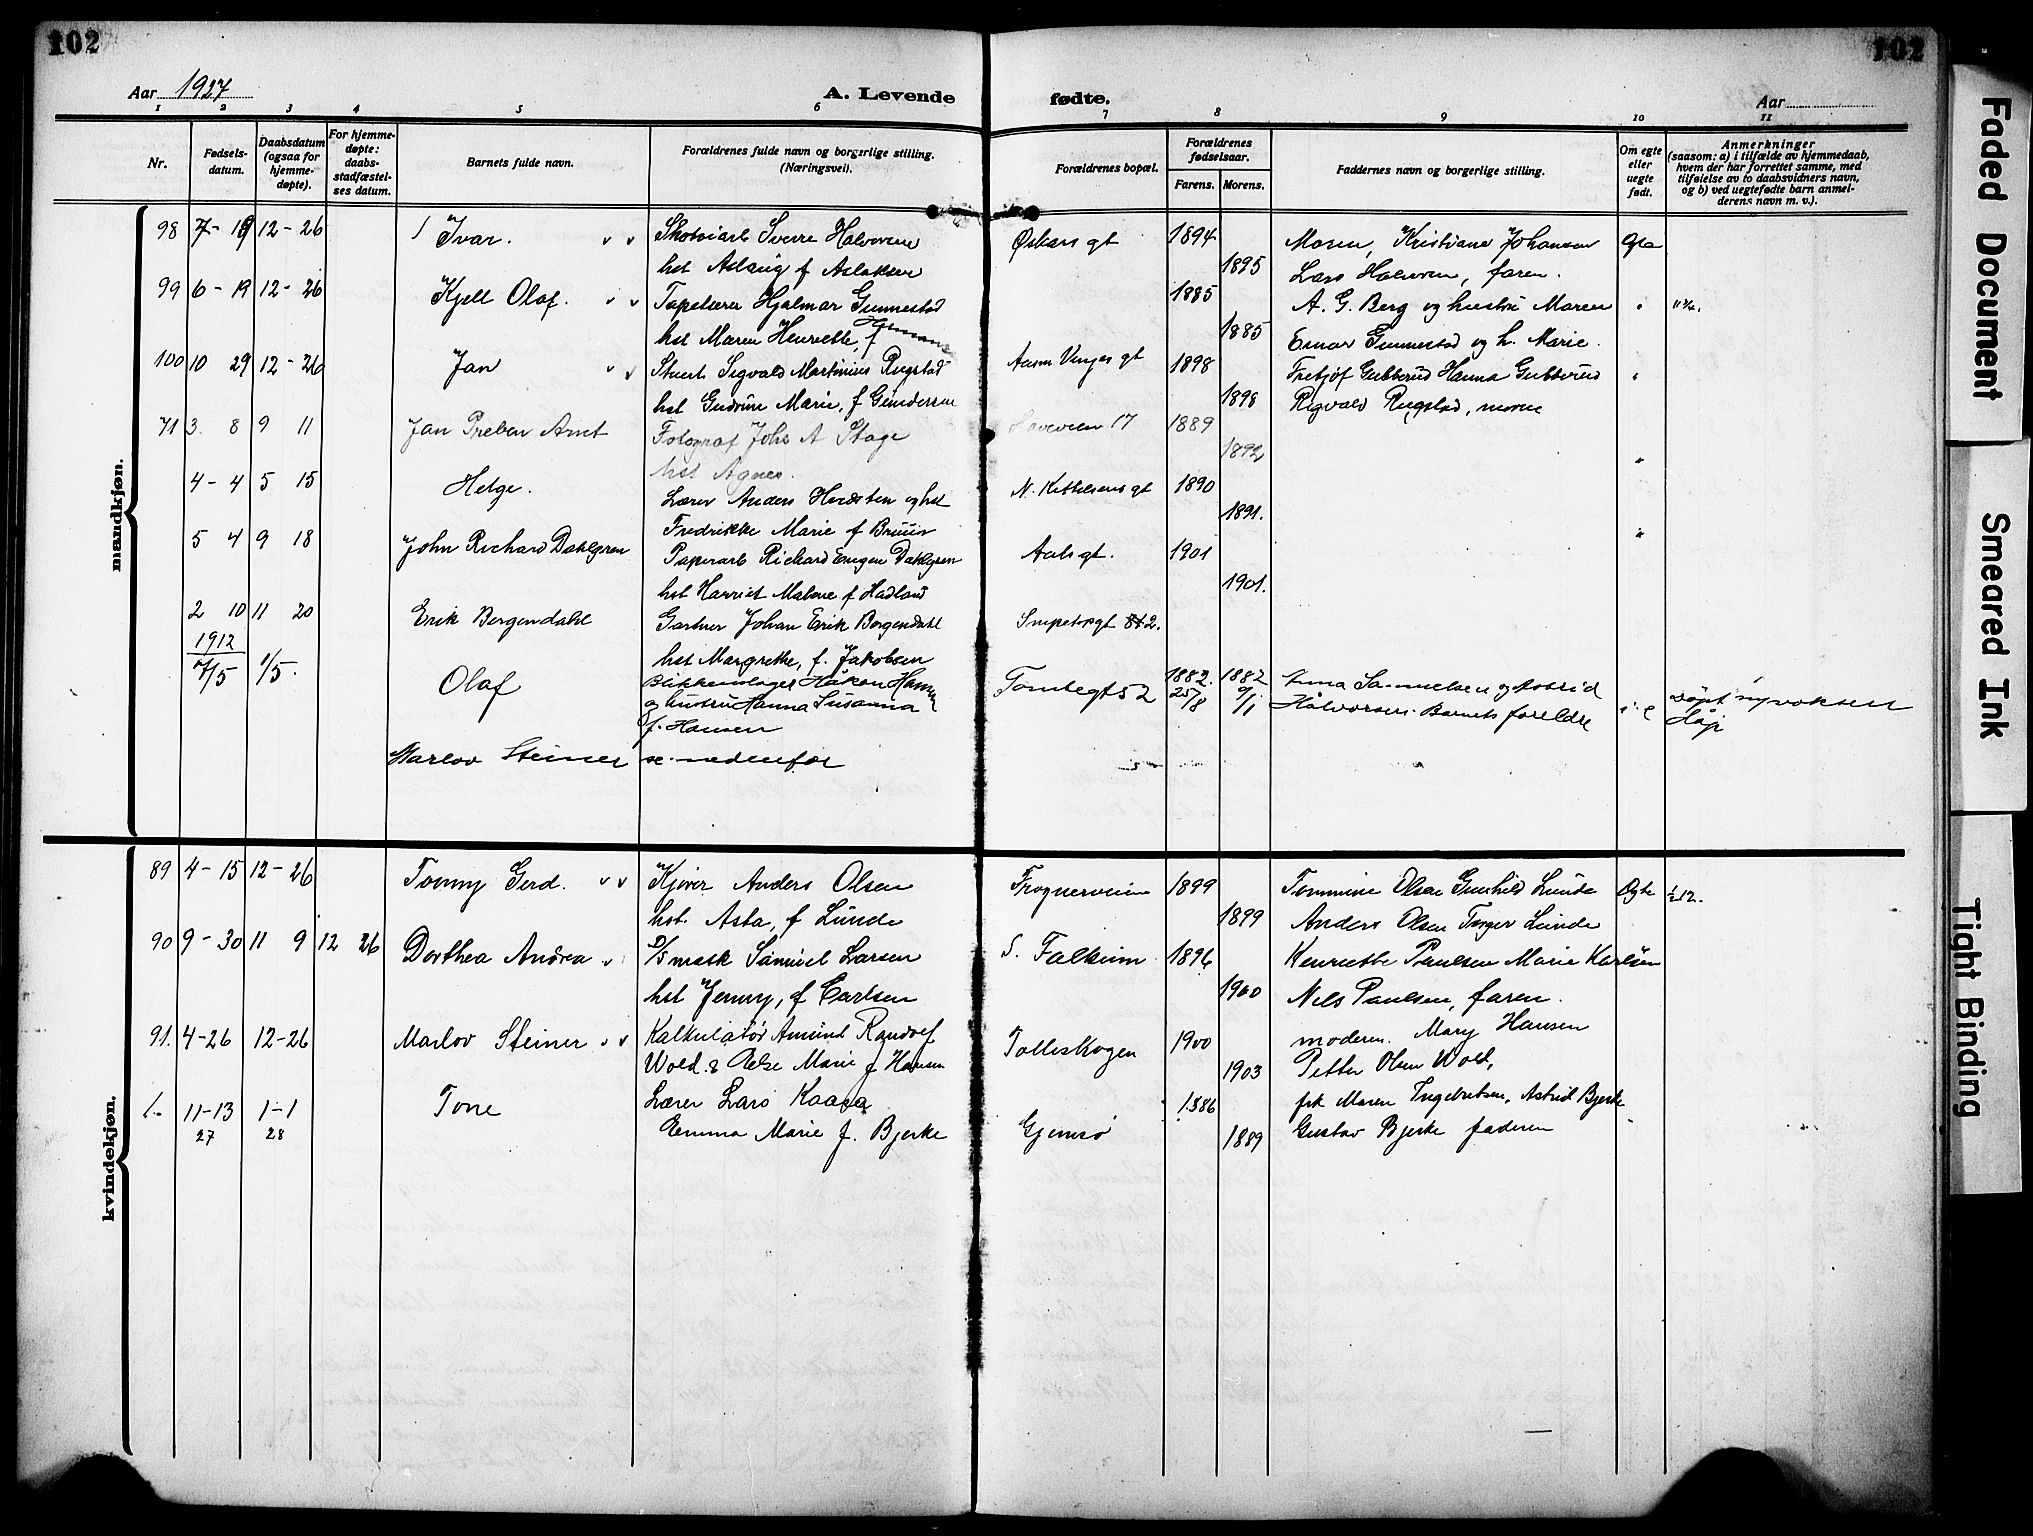 102
102
Aar 1927
A. Levende
fødte.
Aar
1 2 3 4 5 6 7 8 9 10 11
Nr.
Fødsels-
datum.
Daabsdatum
(ogsaa for
hjemme-
døpte).
For hjemme-
døpte:
daabs-
stadfæstel-
ses datum.
Barnets fulde navn.
Forældrenes fulde navn og borgerlige stilling.
(Næringsvei).
Forældrenes bopæl.
Forældrenes
fødselsaar.
Farens. Morens.
Faddernes navn og borgerlige stilling.
Om egte
eller
uegte
født.
Anmerkninger
(saasom: a) i tilfælde av hjemmedaab,
hvem der har forrettet samme, med
tilføielse av to daabsvidners navn,
og b) ved uegtefødte barn anmel-
derens navn m. v.).
mandkjøn.
98 7-18 12-26 Ivar. Skotøiarb Sverre Halvorsen Oskars gt 1894 Moren, Kristiane Johansen
hst Aslaug f Aslaksen 1895 Lars Halvorsen, faren.
99 6-19 12-26 Kjell Olaf. Tapetserer Hjalmar Gunnestad 1885 A. G. Berg og hustru Maren
hst Maren Henriette, f 1885 Einar Gunnestad og h. Marie.
100 10 29 12-26 Jan Stuert Sigvald Martinius Rugstad Aasm Vinjes gt 1898 Fritjof Gubberud Hanna Gubberud
hst Gudrun Marie, f Gundersen 1898 Sigvald Rugstad, moren
71 3 8 9 11 Jan Preben Arnt Fotograf Johs A Stage Haveveien 17 1889
hst Agnes. 1892
4-4 5 15 Helge. Lærer Anders Hvidsten og hst N. Kittelsens gt 1890
Fredrikke Marie f Bruun 1891.
5 4 9 18 John Richard Dahlgren Papirarb Richard Eugen Dahlgren Aals gt. 1901
hst Harriet Malene f Hadland 1901.
2 10 11 20 Erik Borgendahl Gartner Johan Erik Borgendahl Snipetorpgt 2.
hst Margrethe, f. Jakobsen
1912
7/5 1/5. Olaf Blikkenslager Håkon Hansen Tomtegt 52 1882 25/8 1882 9/1 Anna Samuelsen og Astrid
og hustru Hanna Susanna Halvorsen. Barnets foreldre døpt i nyvoksen
f. Hansen
Marlov Steiner se nedenfor
kvindekjøn.
89 4-15 12-26 Tommy Gerd. Kjører Anders Olsen Frognerveien 1899 Tommine Olsen Gunhild Lunde Egte
hst. Asta, f Lunde 1899 Anders Olsen Torger Lunde
90 9-30 11 9 12 26 Dorthea Andrea D/S mask Samuel Larsen S. Falkum 1896 Henriette Paulsen Marie Karlsen
hst Jenny, f Carlsen 1900 Nils Paulsen, faren.
91. 4-26 12-26 Marlov Steiner Kalkulatør Amund Randulf Tolleskogen 1900 moderen. Mary Hansen
Wold & Else Marie f Hansen 1903 Petter Olsen Wold,
1. 11-13 27 1-1 28 Tone Lærer Lars Kaasa Gjemsø 1886 frk Maren Ingebretsen, Astrid Bjerke
Emma Marie f. Bjerke 1889 Gustav Bjerke faderen
Faded Document
Smeared Ink
Tight Binding